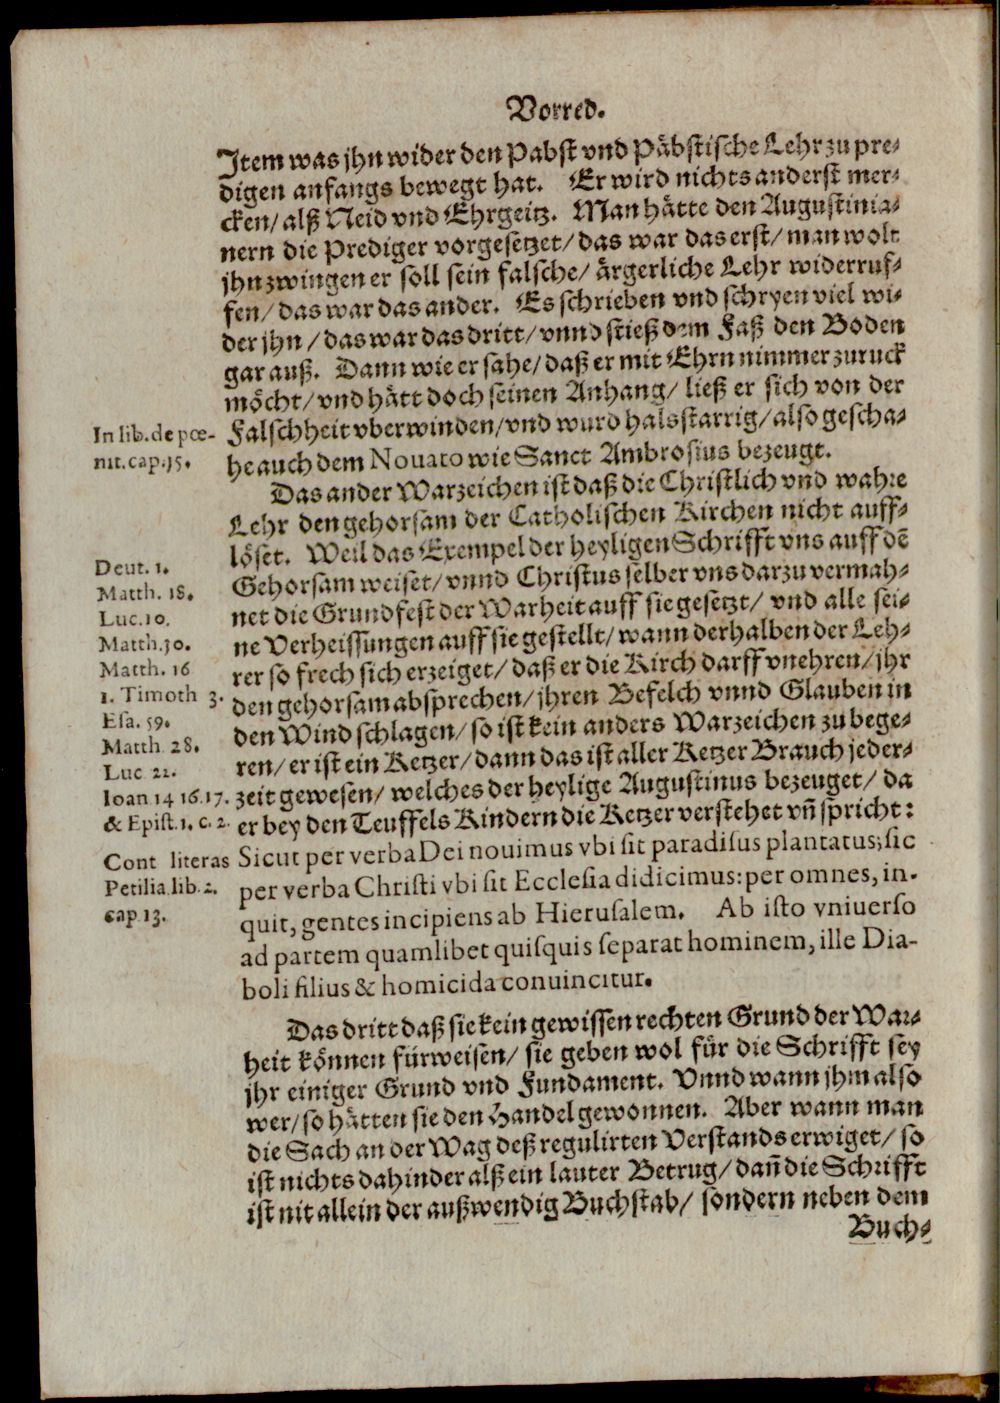 Vorred.
Item was jhn wider den Pabst vnd Päbstische Lehr zu pre-
digen anfangs bewegt hat. Er wird nichts anderst mer-
cken/ alß Neid vnd Ehrgeitz. Man hätte den Augustinia-
nern die Prediger vorgesetzet/ das war das erst/ man wolt
jhn zwingen er soll sein falsche/ ärgerliche Lehr widerruf-
fen/ das war das ander. Es schrieben vnd schryen viel wi-
der jhn/ das war das dritt/ vnnd stieß dem Faß den Boden
gar auß. Dann wie er sahe/ daß er mit Ehrn nimmer zuruck
möcht/ vnd hätt doch seinen Anhang/ ließ er sich von der
In lib. de pœ-
nit. cap. 15.
Falschheit vberwinden/ vnd wurd halsstarrig/ also gescha-
he auch dem Nouato wie Sanct Ambrosius bezeugt.
Das ander Warzeichen ist daß die Christlich vnd wahre
Lehr den gehorsam der Catholischen Kirchen nicht auff-
löset. Weil das Exempel der heyligen Schrifft vns auff dẽ
Deut. 1.
Matth. 18.
Luc. 10.
Matth. 10.
Matth. 16
1. Timoth 3.
Esa. 59.
Matth 28.
Luc 22.
Ioan 14 16. 17.
& Epist. 1. c. 2.
Gehorsam weiset/ vnnd Christus selber vns darzu vermah-
net die Grundfest der Warheit auff sie gesetzt/ vnd alle sei-
ne Verheissungen auff sie gestellt/ wann derhalben der Leh-
rer so frech sich erzeiget/ daß er die Kirch darff vnehren/ jhr
den gehorsam absprechen/ jhren Befelch vnnd Glauben in
den Wind schlagen/ so ist kein anders Warzeichen zu bege-
ren/ er ist ein Ketzer/ dann das ist aller Ketzer Brauch jeder-
zeit gewesen/ welches der heylige Augustinus bezeuget/ da
er bey den Teuffels Kindern die Ketzer verstehet vñ spricht:
Cont literas
Petilia lib. 2.
cap 13.
Sicut per verba Dei nouimus vbi sit paradisus plantatus; sic
per verba Christi vbi sit Ecclesia didicimus: per omnes, in-
quit, gentes incipiens ab Hierusalem. Ab isto vniuerso
ad partem quamlibet quisquis separat hominem, ille Dia-
boli filius & homicida conuincitur.
Das dritt daß sie kein gewissen rechten Grund der War-
heit können fürweisen/ sie geben wol für die Schrifft sey
jhr einiger Grund vnd Fundament. Vnnd wann jhm also
wer/ so hätten sie den Handel gewonnen. Aber wann man
die Sach an der Wag deß regulirten Verstands erwiget/ so
ist nichts dahinder alß ein lauter Betrug/ dañ die Schrifft
ist nit allein der außwendig Buchstab/ sondern neben dem
Buch-